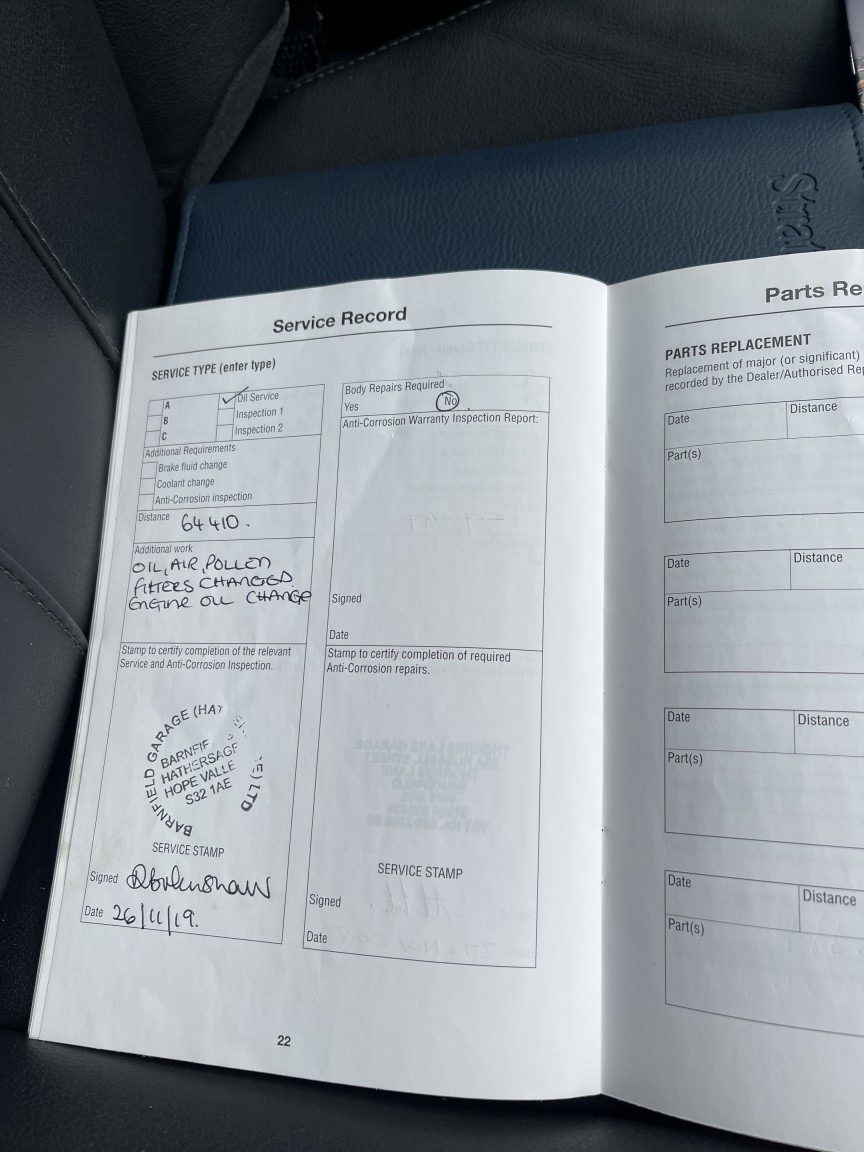 Service Record
SERVICE TYPE (enter type)
A
B
C
Oil Service
Inspection 1
Inspection 2
Additional Requirements
Brake fluid change
Coolant change
Anti-Corrosion inspection
Distance 64410.
Additional work
OIL, AIR, POLLEN
FILTERS CHANGED.
ENGINE OIL CHANGE
Stamp to certify completion of the relevant
Service and Anti-Corrosion Inspection.
BARNFIELD GARAGE (HAT
E) LTD
BARNFIE
HATHERSAGE
HOPE VALLE
S32 1AE
SERVICE STAMP
Signed
Date 26/11/19.
Body Repairs Required
Yes No
Anti-Corrosion Warranty Inspection Report:
Signed
Date
Stamp to certify completion of required
Anti-Corrosion repairs.
SERVICE STAMP
Signed
Date
22
Parts Re
PARTS REPLACEMENT
Replacement of major (or significant)
recorded by the Dealer/Authorised Rep
Date Distance
Part(s)
Date Distance
Part(s)
Date Distance
Part(s)
Date Distance
Part(s)